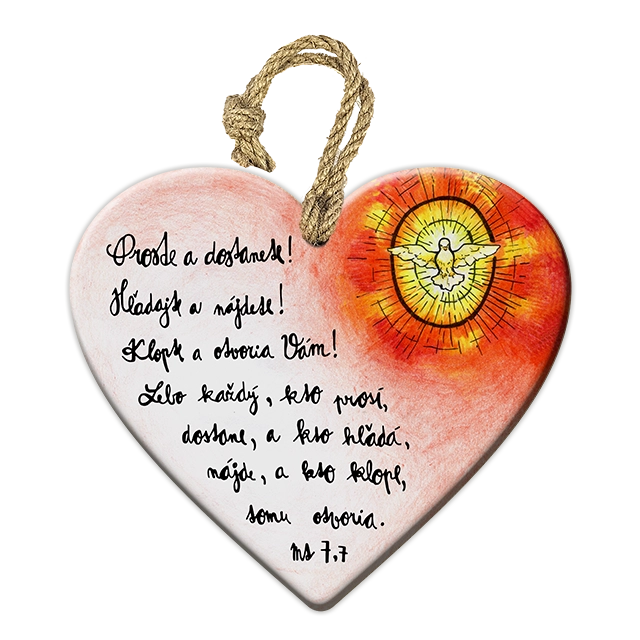 Proste a dostanete!
Hľadajte a nájdete!
Klopte a otvoria Vám!
Lebo každý, kto prosí,
dostane, a kto hľadá,
nájde, a kto klope,
tomu otvoria.
Mt 7,7